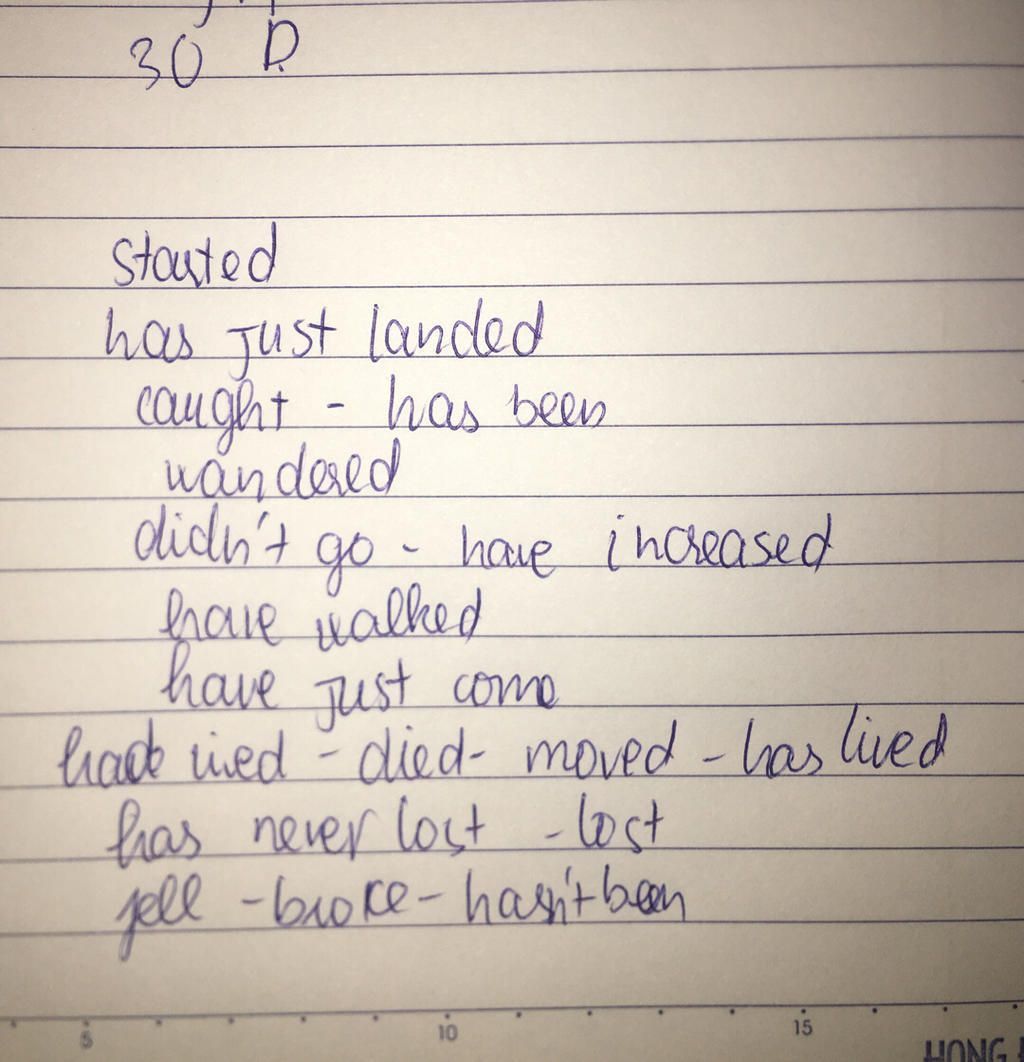 30 D
started
has just landed
caught - has been
wandered
didn't go - have increased
have walked
have just come
had lived - died - moved - has lived
has never lost - lost
fell - broke - hasn't been
5 10 15
HONG